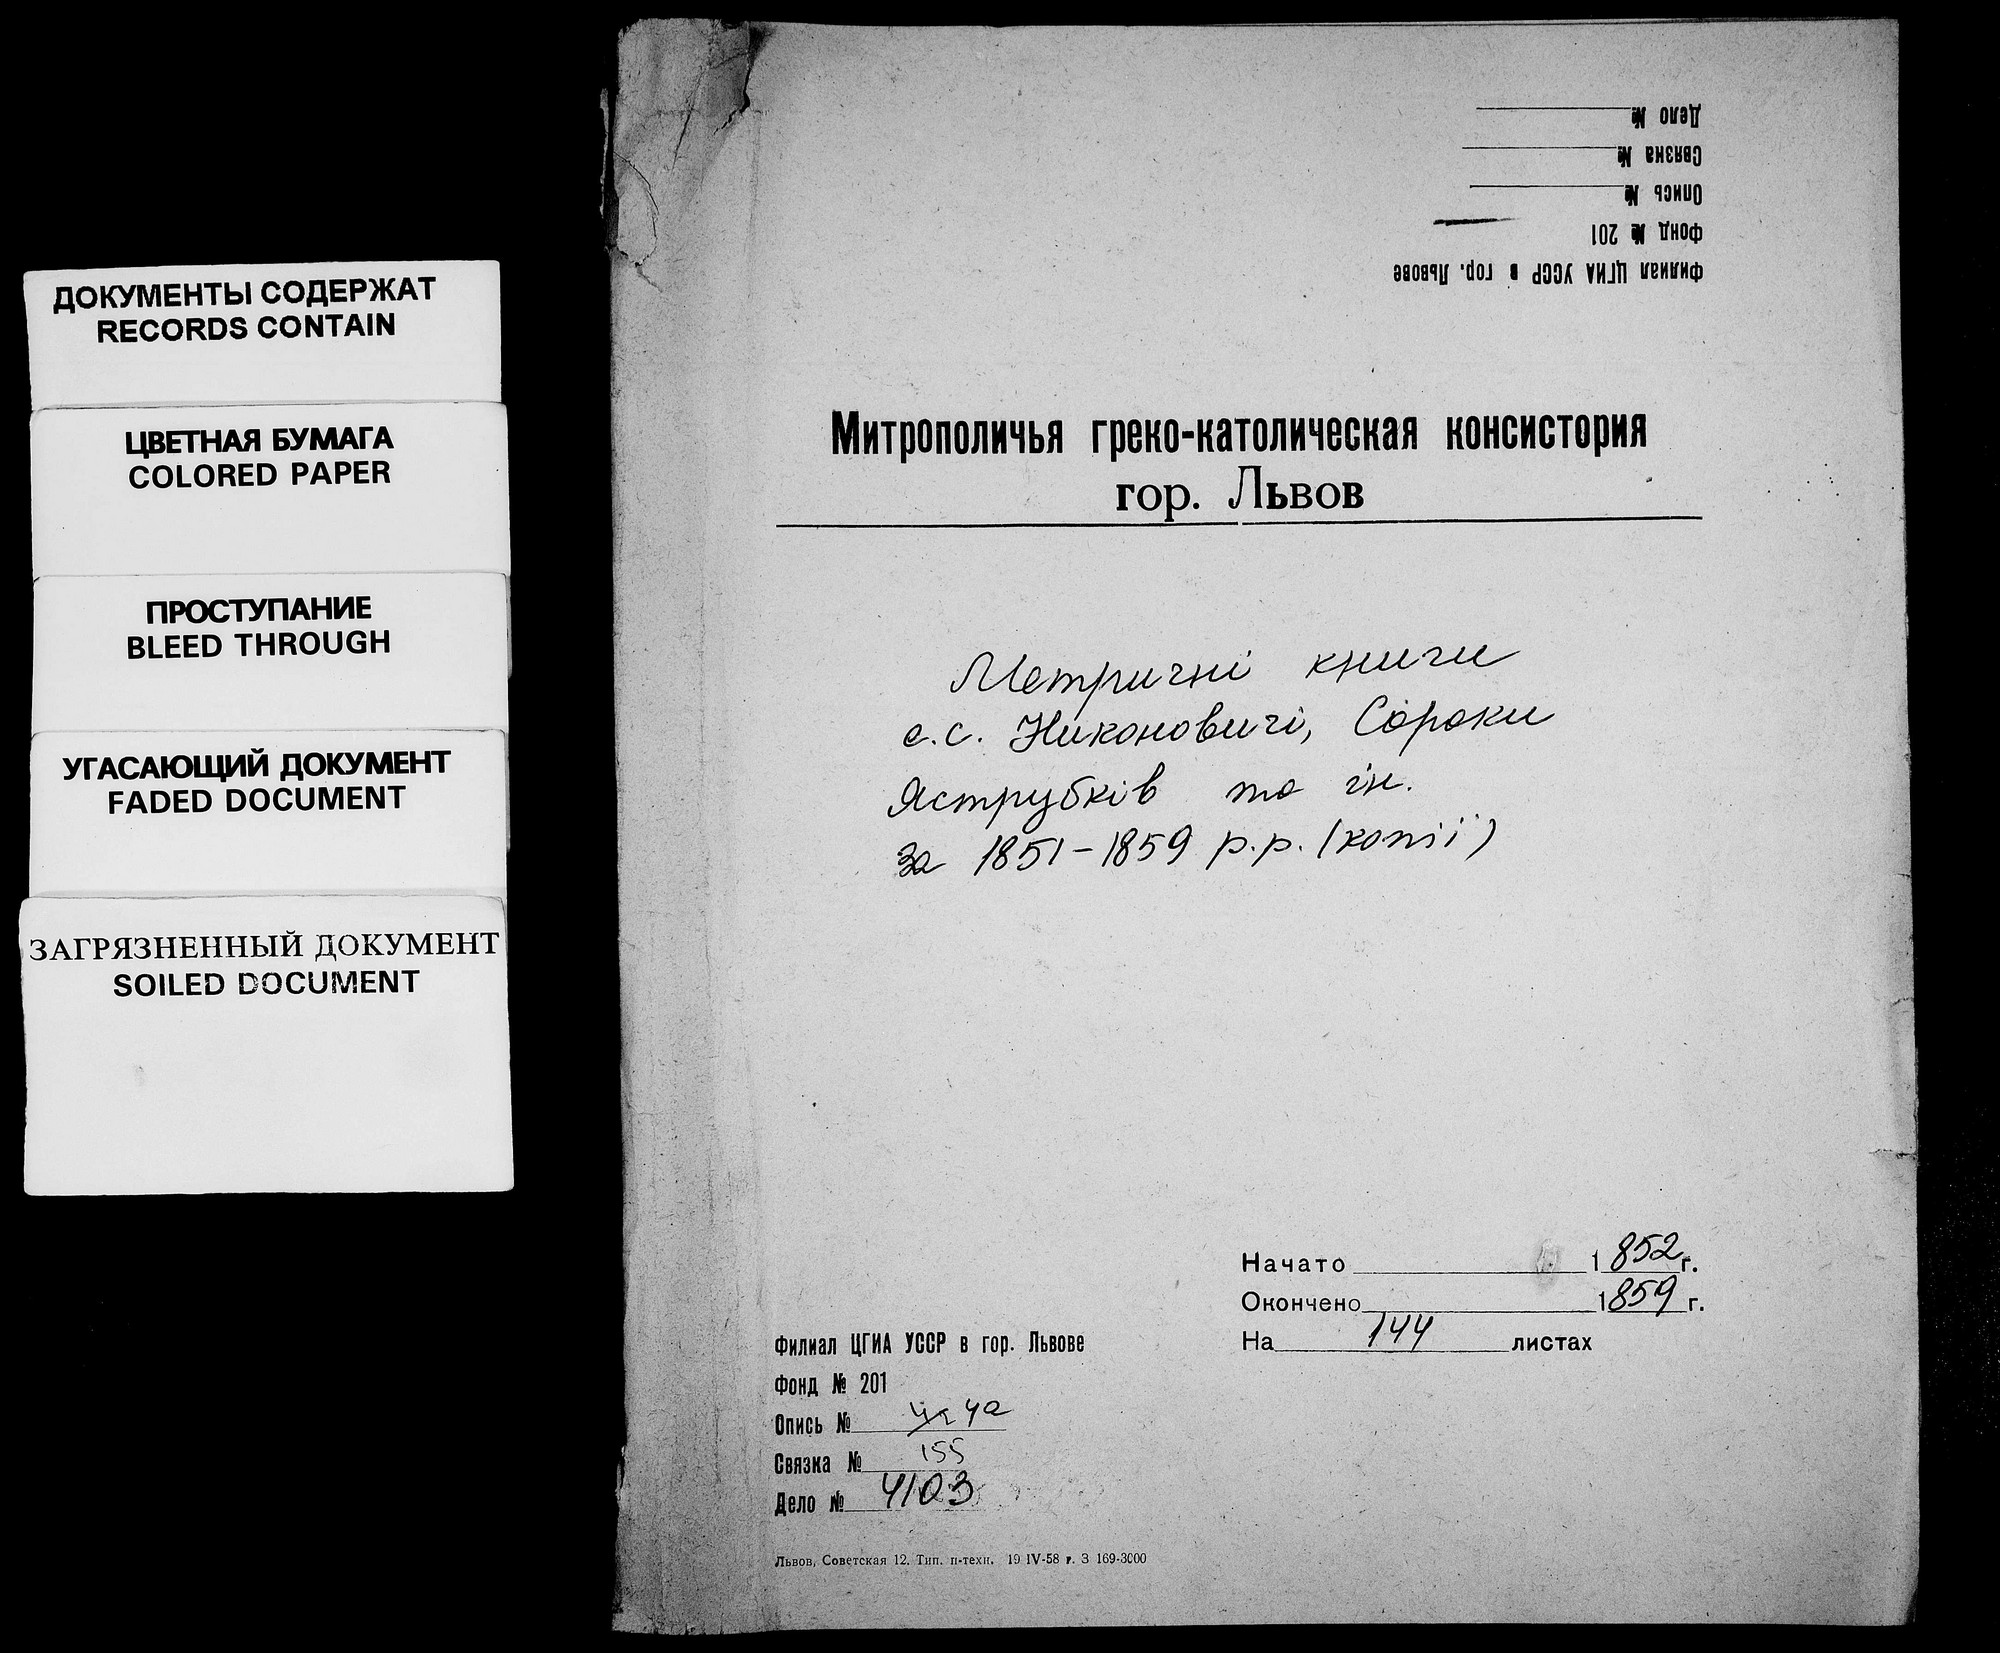 ДОКУМЕНТЫ СОДЕРЖАТ
RECORDS CONTAIN
ЦВЕТНАЯ БУМАГА
COLORED PAPER
ПРОСТУПАНИЕ
BLEED THROUGH
УГАСАЮЩИЙ ДОКУМЕНТ
FADED DOCUMENT
ЗАГРЯЗНЕННЫЙ ДОКУМЕНТ
SOILED DOCUMENT
Дело №
Связка №
Опись №
Фонд № 201
Филиал ЦГИА УССР в гор. Львове
Митрополичья греко-католическая консистория
гор. Львов
Метричні книги
с.с. Никоновичі, Сороки
Яструбків та ін.
за 1851-1859 р.р. (копії)
Начато 1852 г.
Окончено 1859 г.
На 144 листах
Филиал ЦГИА УССР в гор. Львове
Фонд № 201
Опись № 4а
Связка № 155
Дело № 4103
Львов, Советская 12. Тип. п-техн. 19 IV-58 г. З 169-3000